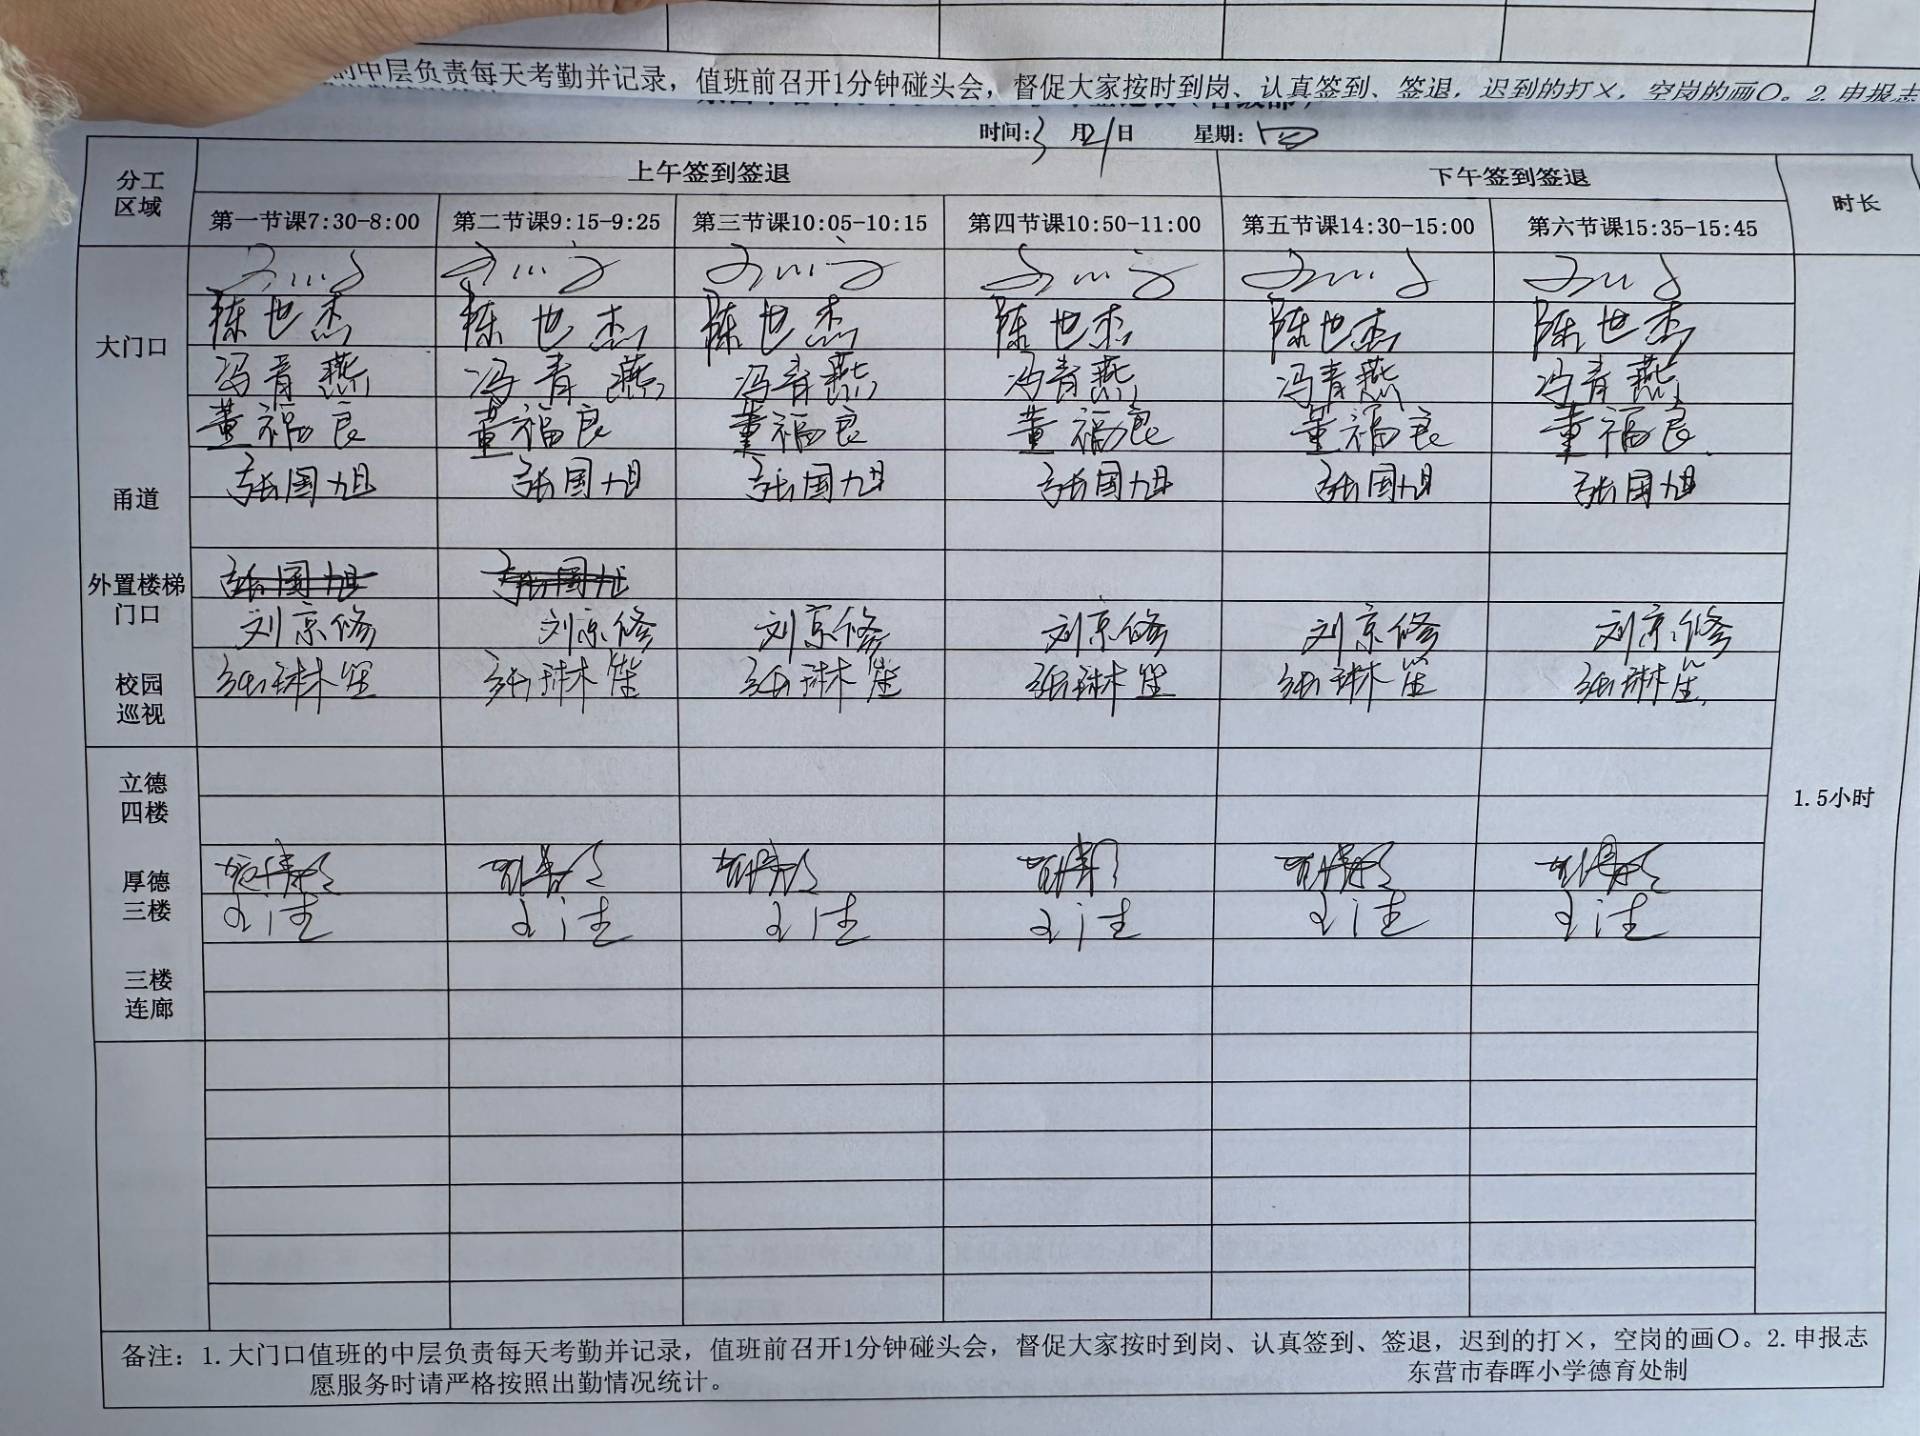 的中层负责每天考勤并记录，值班前召开1分钟碰头会，督促大家按时到岗、认真签到、签退，迟到的打×，空岗的画〇。2.申报志
时间:3月21日 星期:四
分工区域 上午签到签退 下午签到签退 时长
第一节课7:30-8:00 第二节课9:15-9:25 第三节课10:05-10:15 第四节课10:50-11:00 第五节课14:30-15:00 第六节课15:35-15:45
大门口
陈也杰 陈也杰 陈也杰 陈也杰 陈也杰 陈也杰
冯青燕 冯青燕 冯青燕 冯青燕 冯青燕 冯青燕
董福良 董福良 董福良 董福良 董福良 董福良
甬道
张国旭 张国旭 张国旭 张国旭 张国旭 张国旭
外置楼梯
门口
张国旭 张国旭
刘京修 刘京修 刘京修 刘京修 刘京修 刘京修
校园
巡视
张琳笙 张琳笙 张琳笙 张琳笙 张琳笙 张琳笙
立德
四楼
1.5小时
厚德
三楼
三楼
连廊
备注：1.大门口值班的中层负责每天考勤并记录，值班前召开1分钟碰头会，督促大家按时到岗、认真签到、签退，迟到的打×，空岗的画〇。2.申报志
愿服务时请严格按照出勤情况统计。 东营市春晖小学德育处制